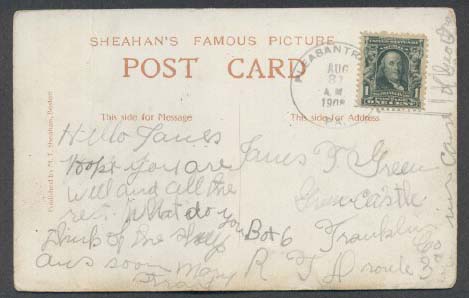 SHEAHAN'S FAMOUS PICTURE
POST CARD
This side for Message
This side for Address
Published by M. T. Sheahan, Boston
AUG
31
A M
190
ONE CENT
Hello James
Hope you are
well and all the
rest. What do you
think of the
ans soon
James F Green
Greencastle
Box 6 Franklin Co
R F D route 3